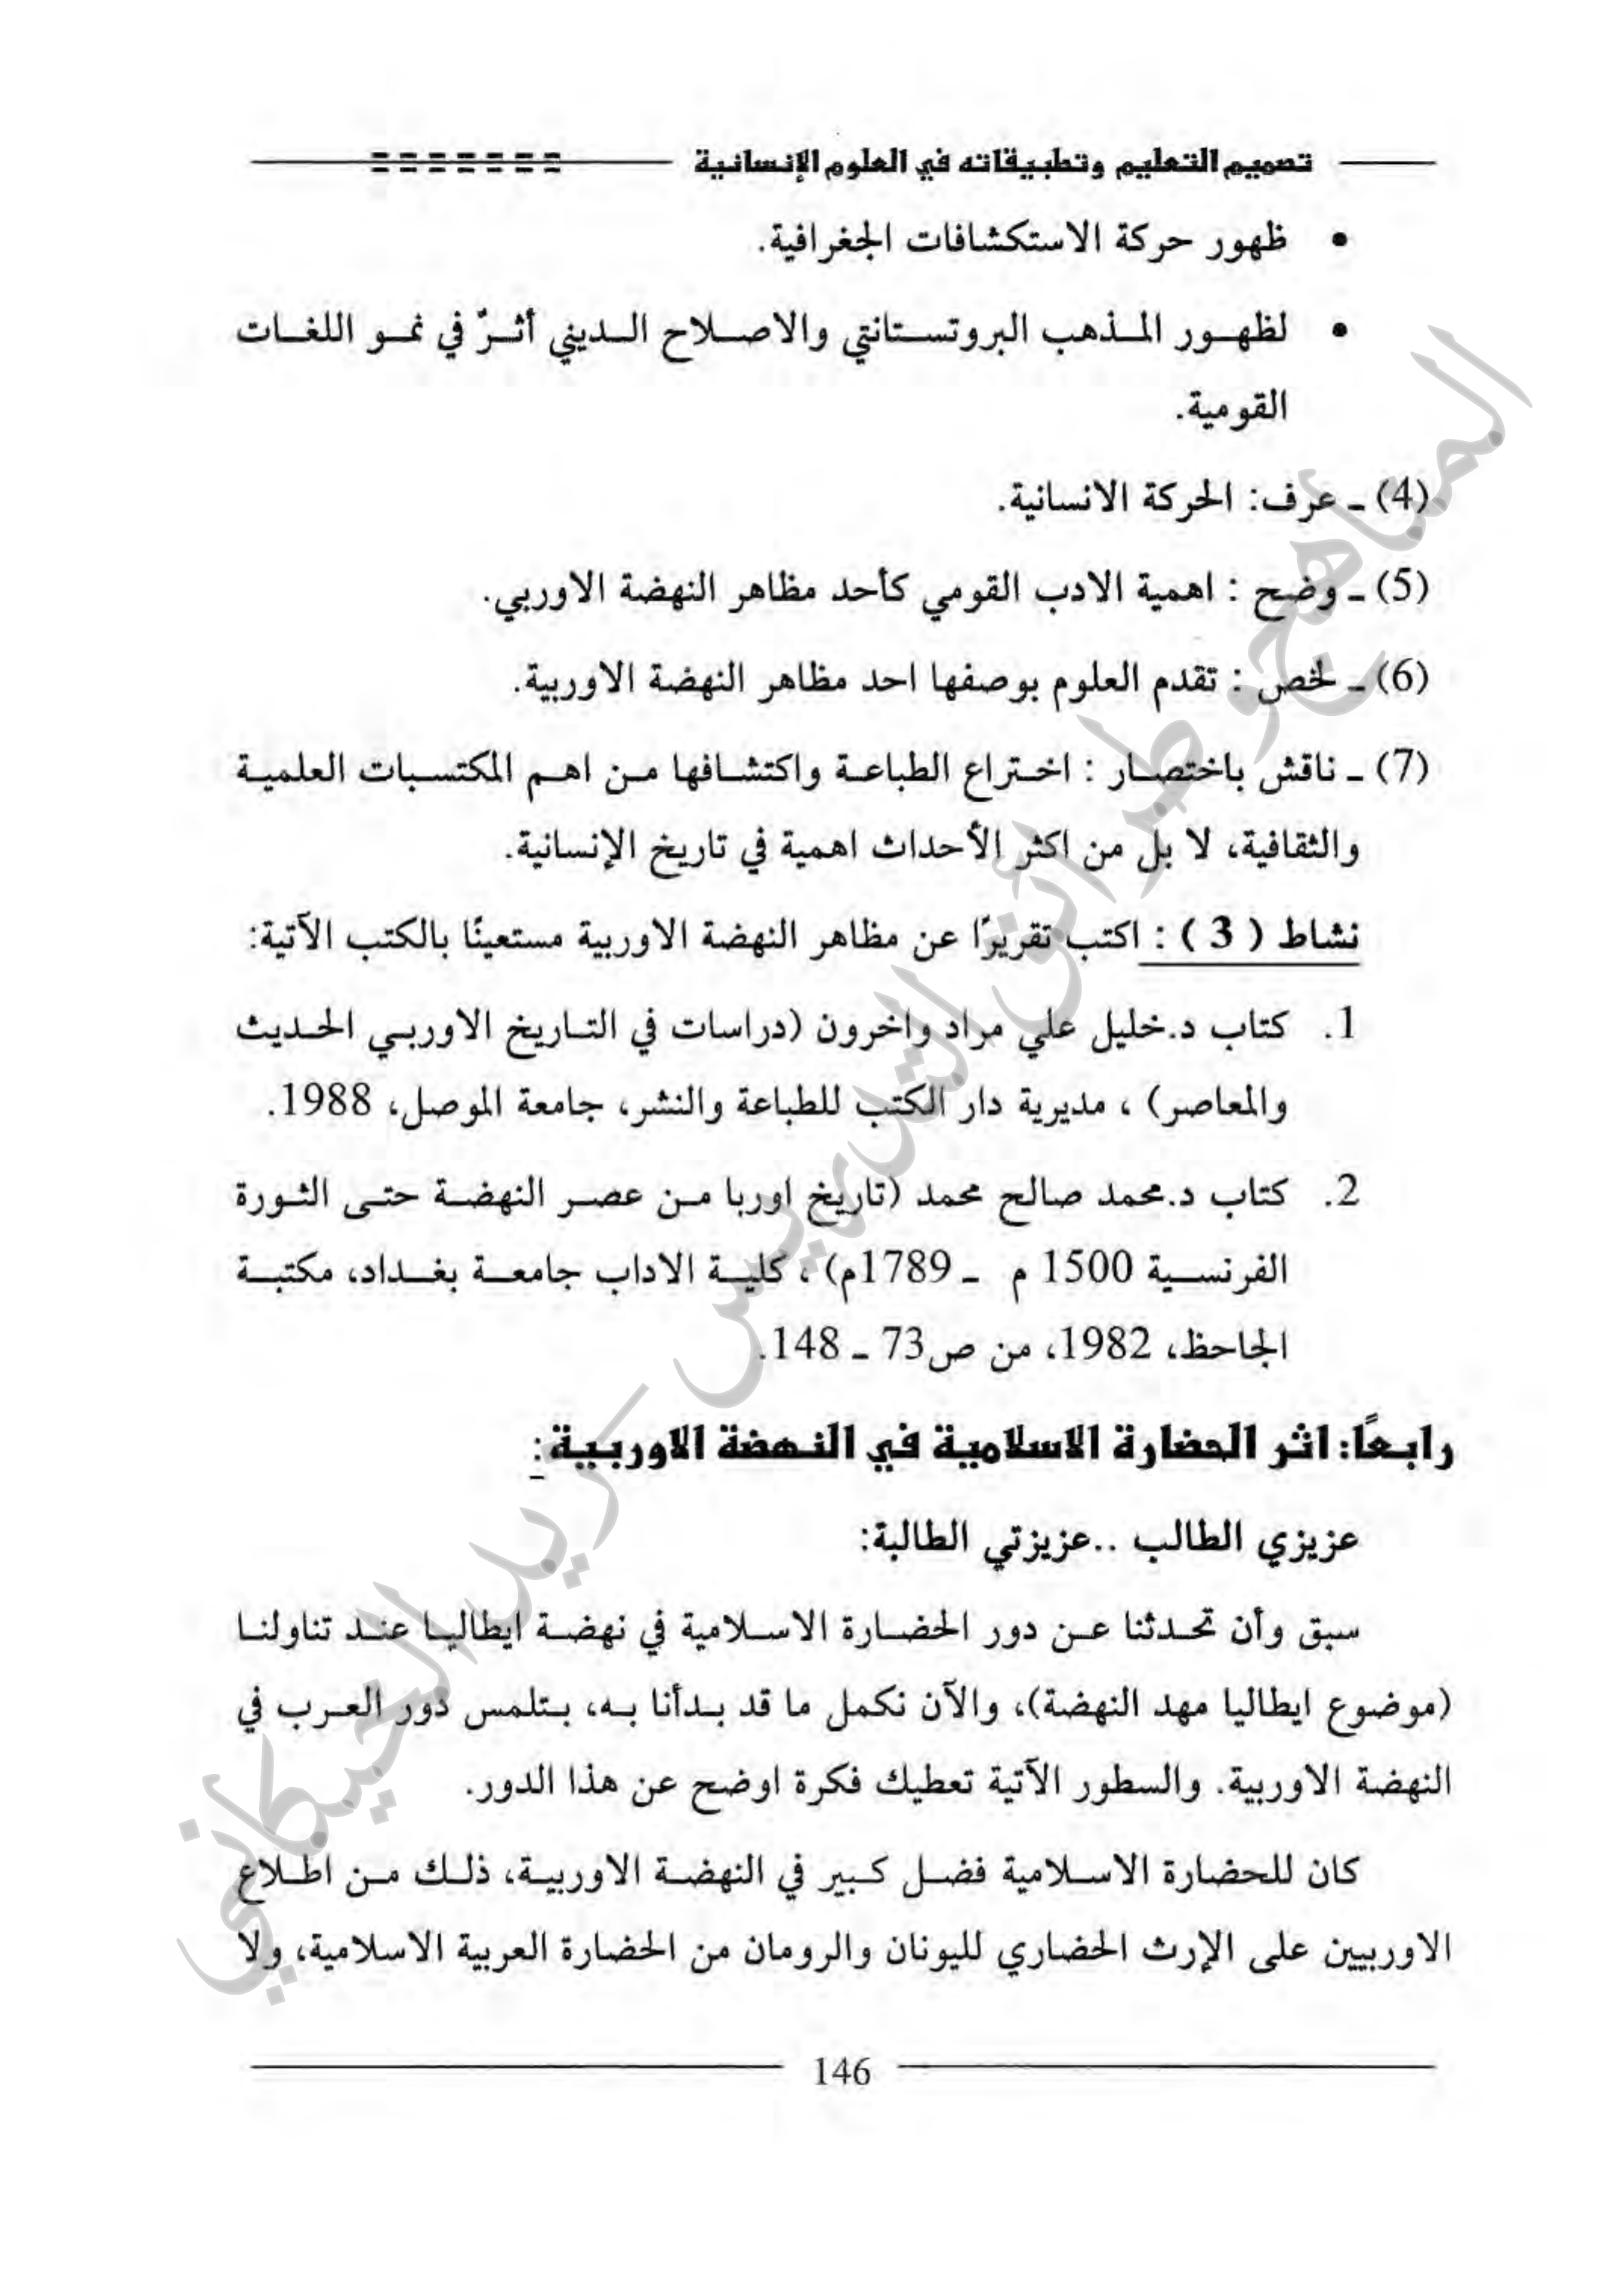 تصميم التعليم وتطبيقاته في العلوم الإنسانية
• ظهور حركة الاستكشافات الجغرافية.
• لظهور المذهب البروتستانتي والاصلاح الديني أثرٌ في نمو اللغات
القومية.
(4) ـ عرف: الحركة الانسانية.
(5) ـ وضح : اهمية الادب القومي كأحد مظاهر النهضة الاوربي.
(6) ـ لخص : تقدم العلوم بوصفها احد مظاهر النهضة الاوربية.
(7) ـ ناقش باختصار : اختراع الطباعة واكتشافها من اهم المكتسبات العلمية
والثقافية، لا بل من اكثر الأحداث اهمية في تاريخ الإنسانية.
نشاط ( 3 ) : اكتب تقريرًا عن مظاهر النهضة الاوربية مستعينًا بالكتب الآتية:
1. كتاب د.خليل علي مراد واخرون (دراسات في التاريخ الاوربي الحديث
والمعاصر) ، مديرية دار الكتب للطباعة والنشر، جامعة الموصل، 1988.
2. كتاب د.محمد صالح محمد (تاريخ اوربا من عصر النهضة حتى الثورة
الفرنسية 1500 م ـ 1789م) ، كلية الاداب جامعة بغداد، مكتبة
الجاحظ، 1982، من ص73 ـ 148.
رابعًا: اثر الحضارة الاسلامية في النهضة الاوربية:
عزيزي الطالب ..عزيزتي الطالبة:
سبق وأن تحدثنا عن دور الحضارة الاسلامية في نهضة ايطاليا عند تناولنا
(موضوع ايطاليا مهد النهضة)، والآن نكمل ما قد بدأنا به، بتلمس دور العرب في
النهضة الاوربية. والسطور الآتية تعطيك فكرة اوضح عن هذا الدور.
كان للحضارة الاسلامية فضل كبير في النهضة الاوربية، ذلك من اطلاع
الاوربيين على الإرث الحضاري لليونان والرومان من الحضارة العربية الاسلامية، ولا
146
المناهج وطرائق التدريس – ريد الحيكاني